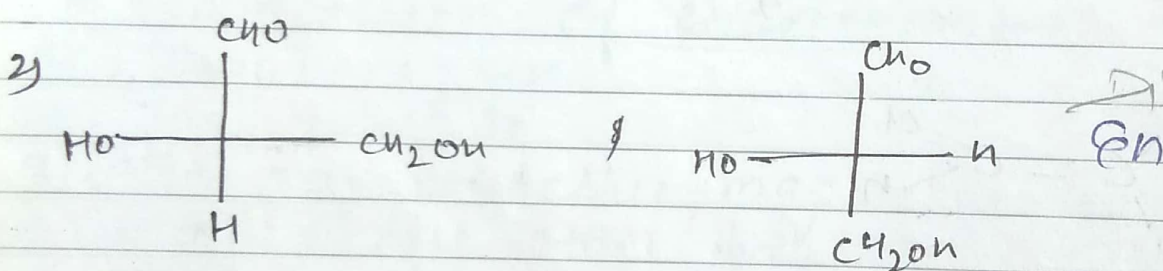 2)
CHO
HO
CH2OH
H
&
CHO
HO
H
CH2OH
Di
En